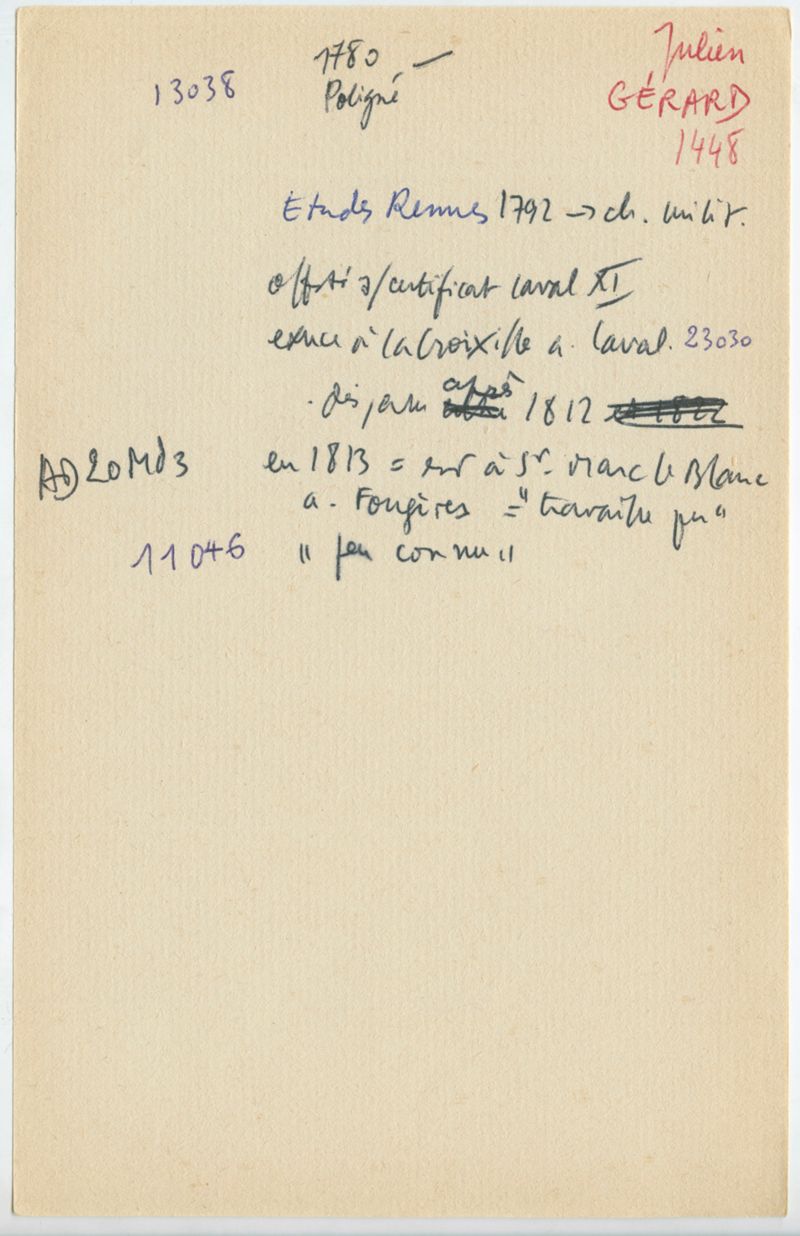 1780 —
Julien
13038
Poligné
GÉRARD
1448
Etudes Rennes 1792 → ch. milit.
off. s/certificat Laval XI
exerce à la Croixille a. Laval. 23030
après
. disparu 1812
AD 20Md3
en 1813 = est à St. Marc le Blanc
a. Fougères = "travaille peu"
11046
"peu connu"